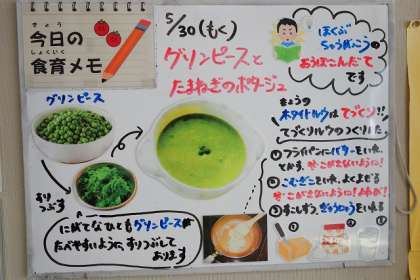 きょう
今日の
しょくいく
食育メモ
5/30(もく)
グリンピースと
たまねぎのポタージュ
ほくぶ
ちゅうがっこうの
おうぼこんだて
です
グリンピース
すり
つぶす
にがてなひともグリンピースが
たべやすいように、すりつぶして
あります
きょうの
ホワイトルウはてづくり!!
てづくりルウのつくりかた
① フライパンにバターをいれ、
とかす。
② こむぎこをいれ、よくまぜる
こがさないように!
③ すこしずつ、ぎゅうにゅうをいれる
①
②
③